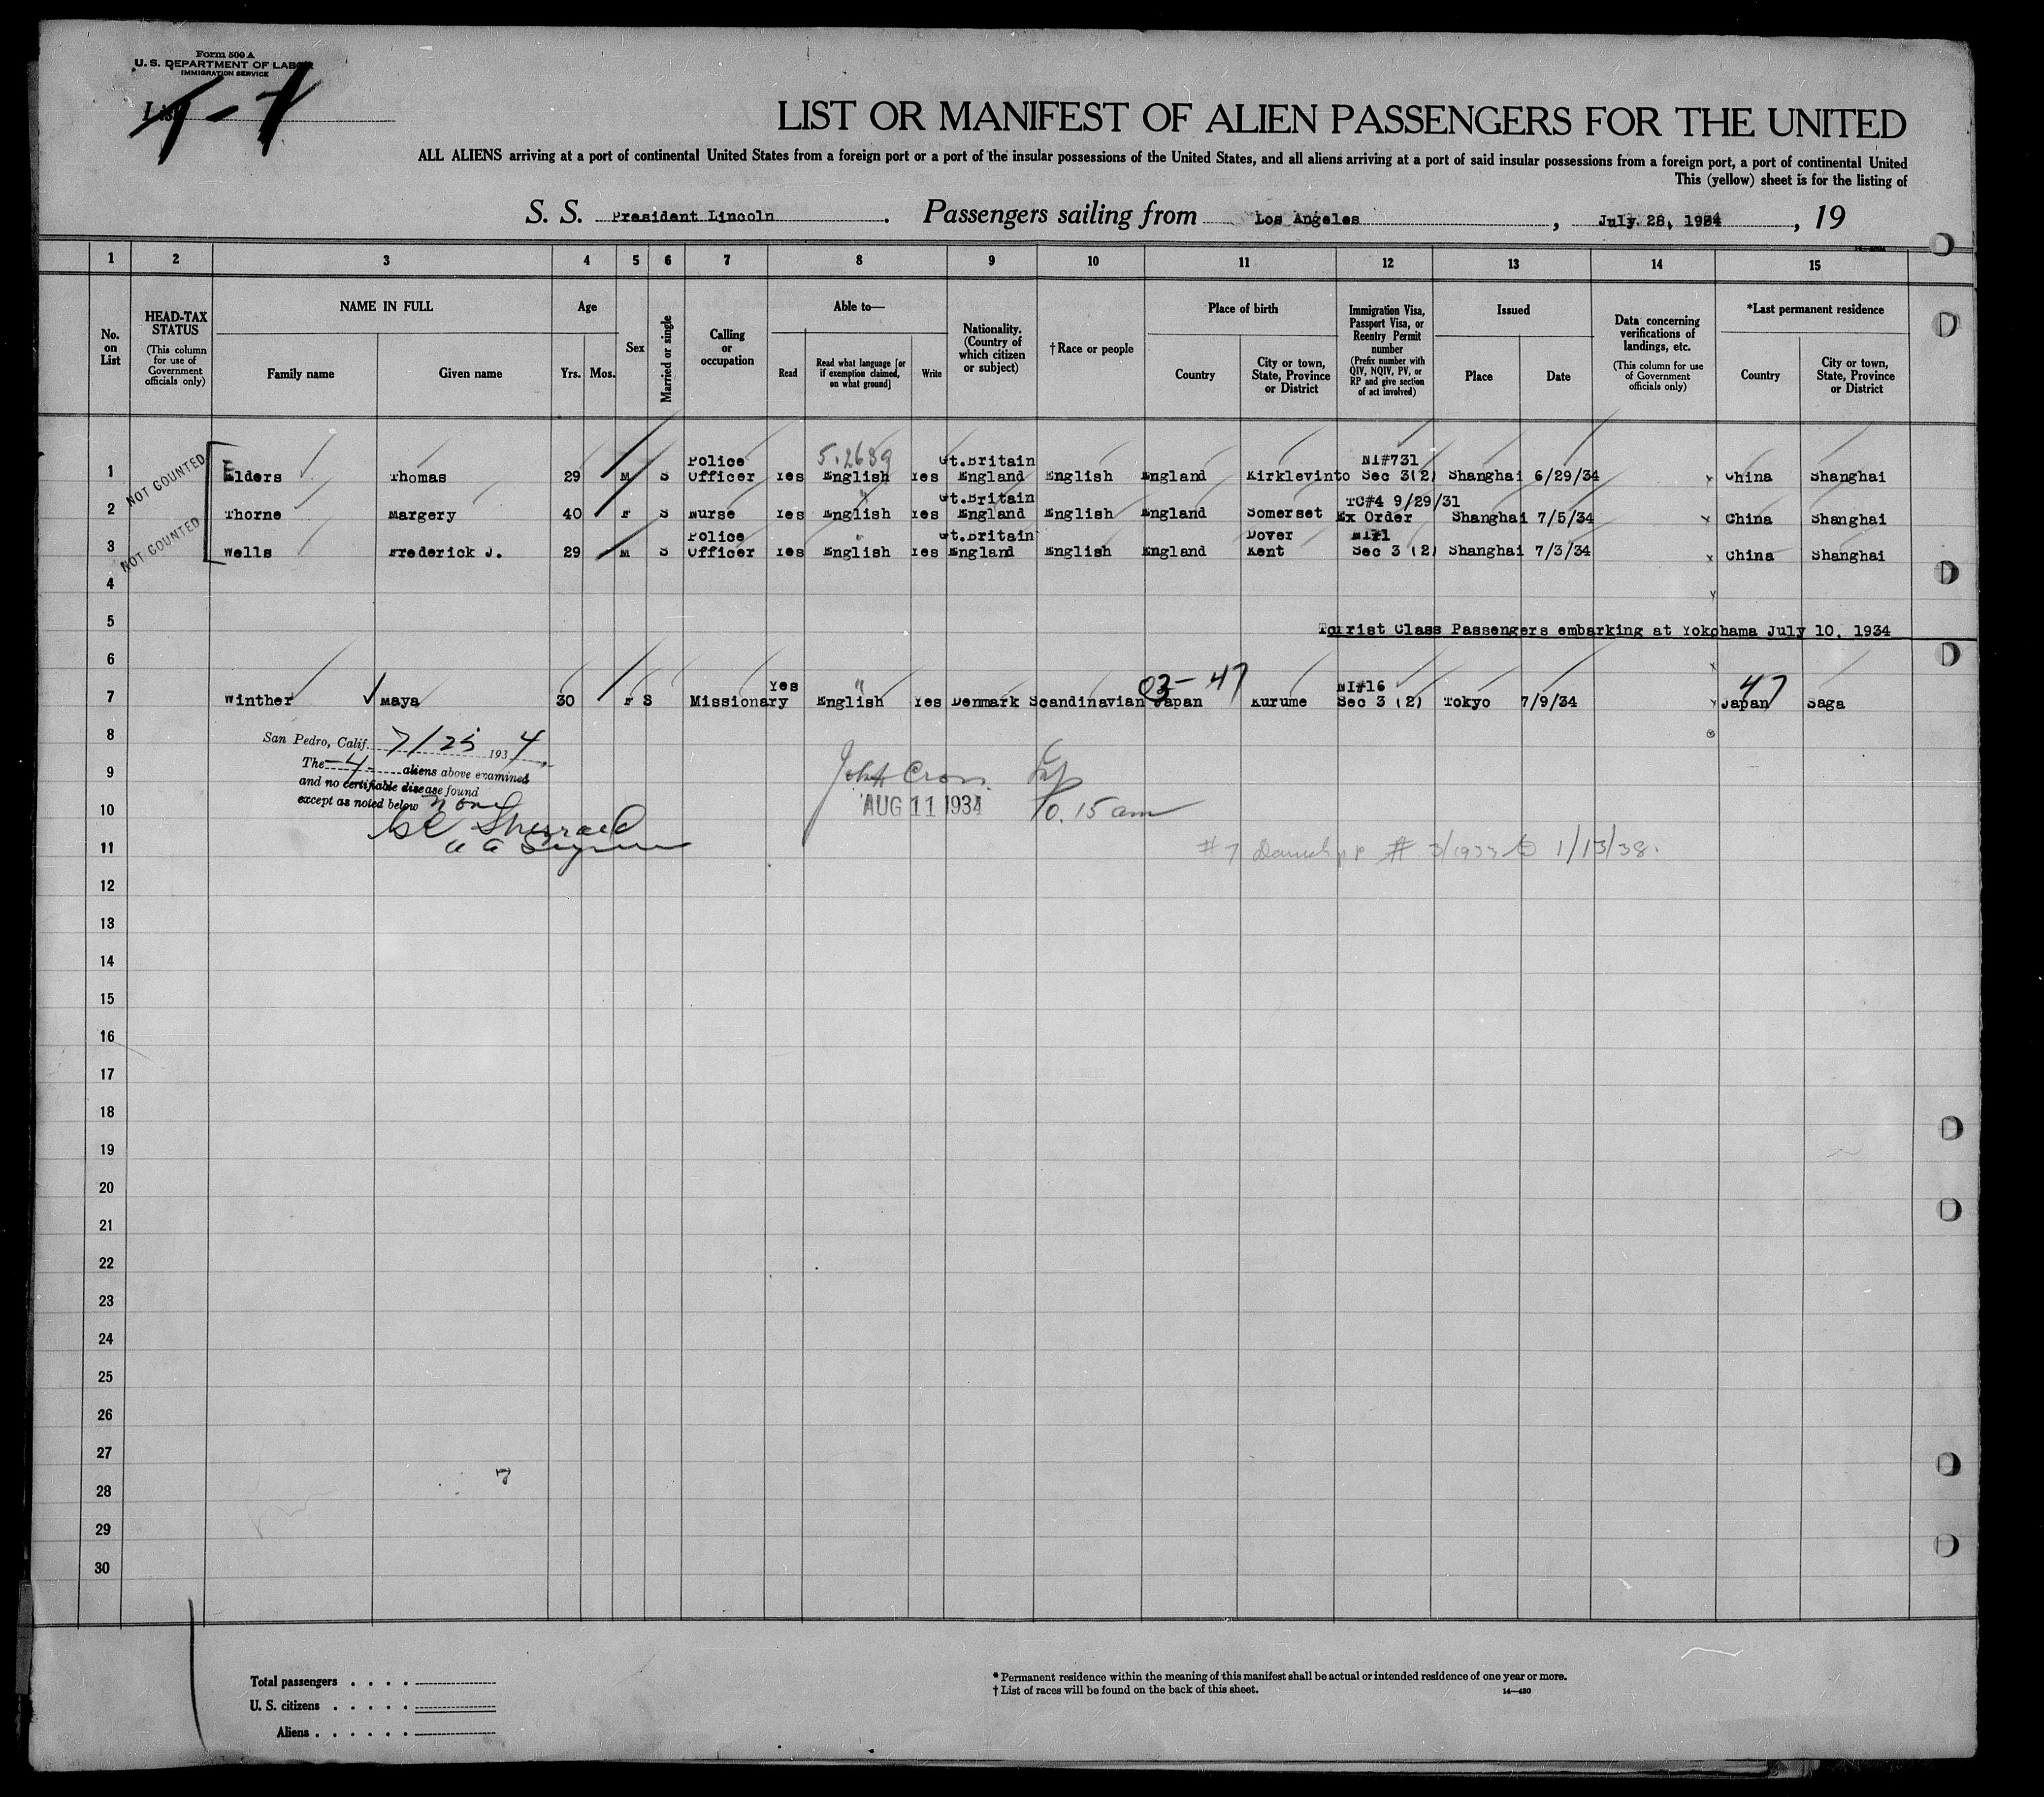 Form 500 A
U. S. DEPARTMENT OF LABOR
IMMIGRATION SERVICE
List
LIST OR MANIFEST OF ALIEN PASSENGERS FOR THE UNITED
ALL ALIENS arriving at a port of continental United States from a foreign port or a port of the insular possessions of the United States, and all aliens arriving at a port of said insular possessions from a foreign port, a port of continental United
This (yellow) sheet is for the listing of
S. S. President Lincoln . Passengers sailing from Los Angeles , July 28, 1934 , 19
1 2 3 4 5 6 7 8 9 10 11 12 13 14 15
No. on List
HEAD-TAX STATUS
(This column for use of Government officials only)
NAME IN FULL
Family name Given name
Age
Yrs. Mos.
Sex
Married or single
Calling or occupation
Able to—
Read
Read what language [or if exemption claimed, on what ground]
Write
Nationality. (Country of which citizen or subject)
†Race or people
Place of birth
Country
City or town, State, Province or District
Immigration Visa, Passport Visa, or Reentry Permit number
(Prefix number with QIV, NQIV, PV, or RP and give section of act involved)
Issued
Place Date
Data concerning verifications of landings, etc.
(This column for use of Government officials only)
*Last permanent residence
Country
City or town, State, Province or District
NOT COUNTED
Police 5.2689 Gt.Britain NI#731
1 Elders Thomas 29 M S Officer Yes English Yes England English England Kirklevinto Sec 3(2) Shanghai 6/29/34 China Shanghai
Gt.Britain TC#4 9/29/31
2 Thorne Margery 40 F S Nurse Yes English Yes England English England Somerset Ex Order Shanghai 7/5/34 China Shanghai
NOT COUNTED
Police Gt.Britain Dover NI#1
3 Wells Frederick J. 29 M S Officer Yes English Yes England English England Kent Sec 3 (2) Shanghai 7/3/34 China Shanghai
4
5 Tourist Class Passengers embarking at Yokohama July 10, 1934
6
Yes 03- 47 NI#16 47
7 Winther Maya 30 F S Missionary English Yes Denmark Scandinavian Japan Kurume Sec 3 (2) Tokyo 7/9/34 Japan Saga
8 San Pedro, Calif. 7/25 1934
The -4- aliens above examined
9 and no certifiable disease found
except as noted below none
John Cross
10 AUG 11 1934 10.15 am
11 #7 # 1/13/38.
12
13
14
15
16
17
18
19
20
21
22
23
24
25
26
27
28
29
30
Total passengers . . . .
U. S. citizens . . . . .
Aliens . . . . . .
* Permanent residence within the meaning of this manifest shall be actual or intended residence of one year or more.
† List of races will be found on the back of this sheet.
14—430